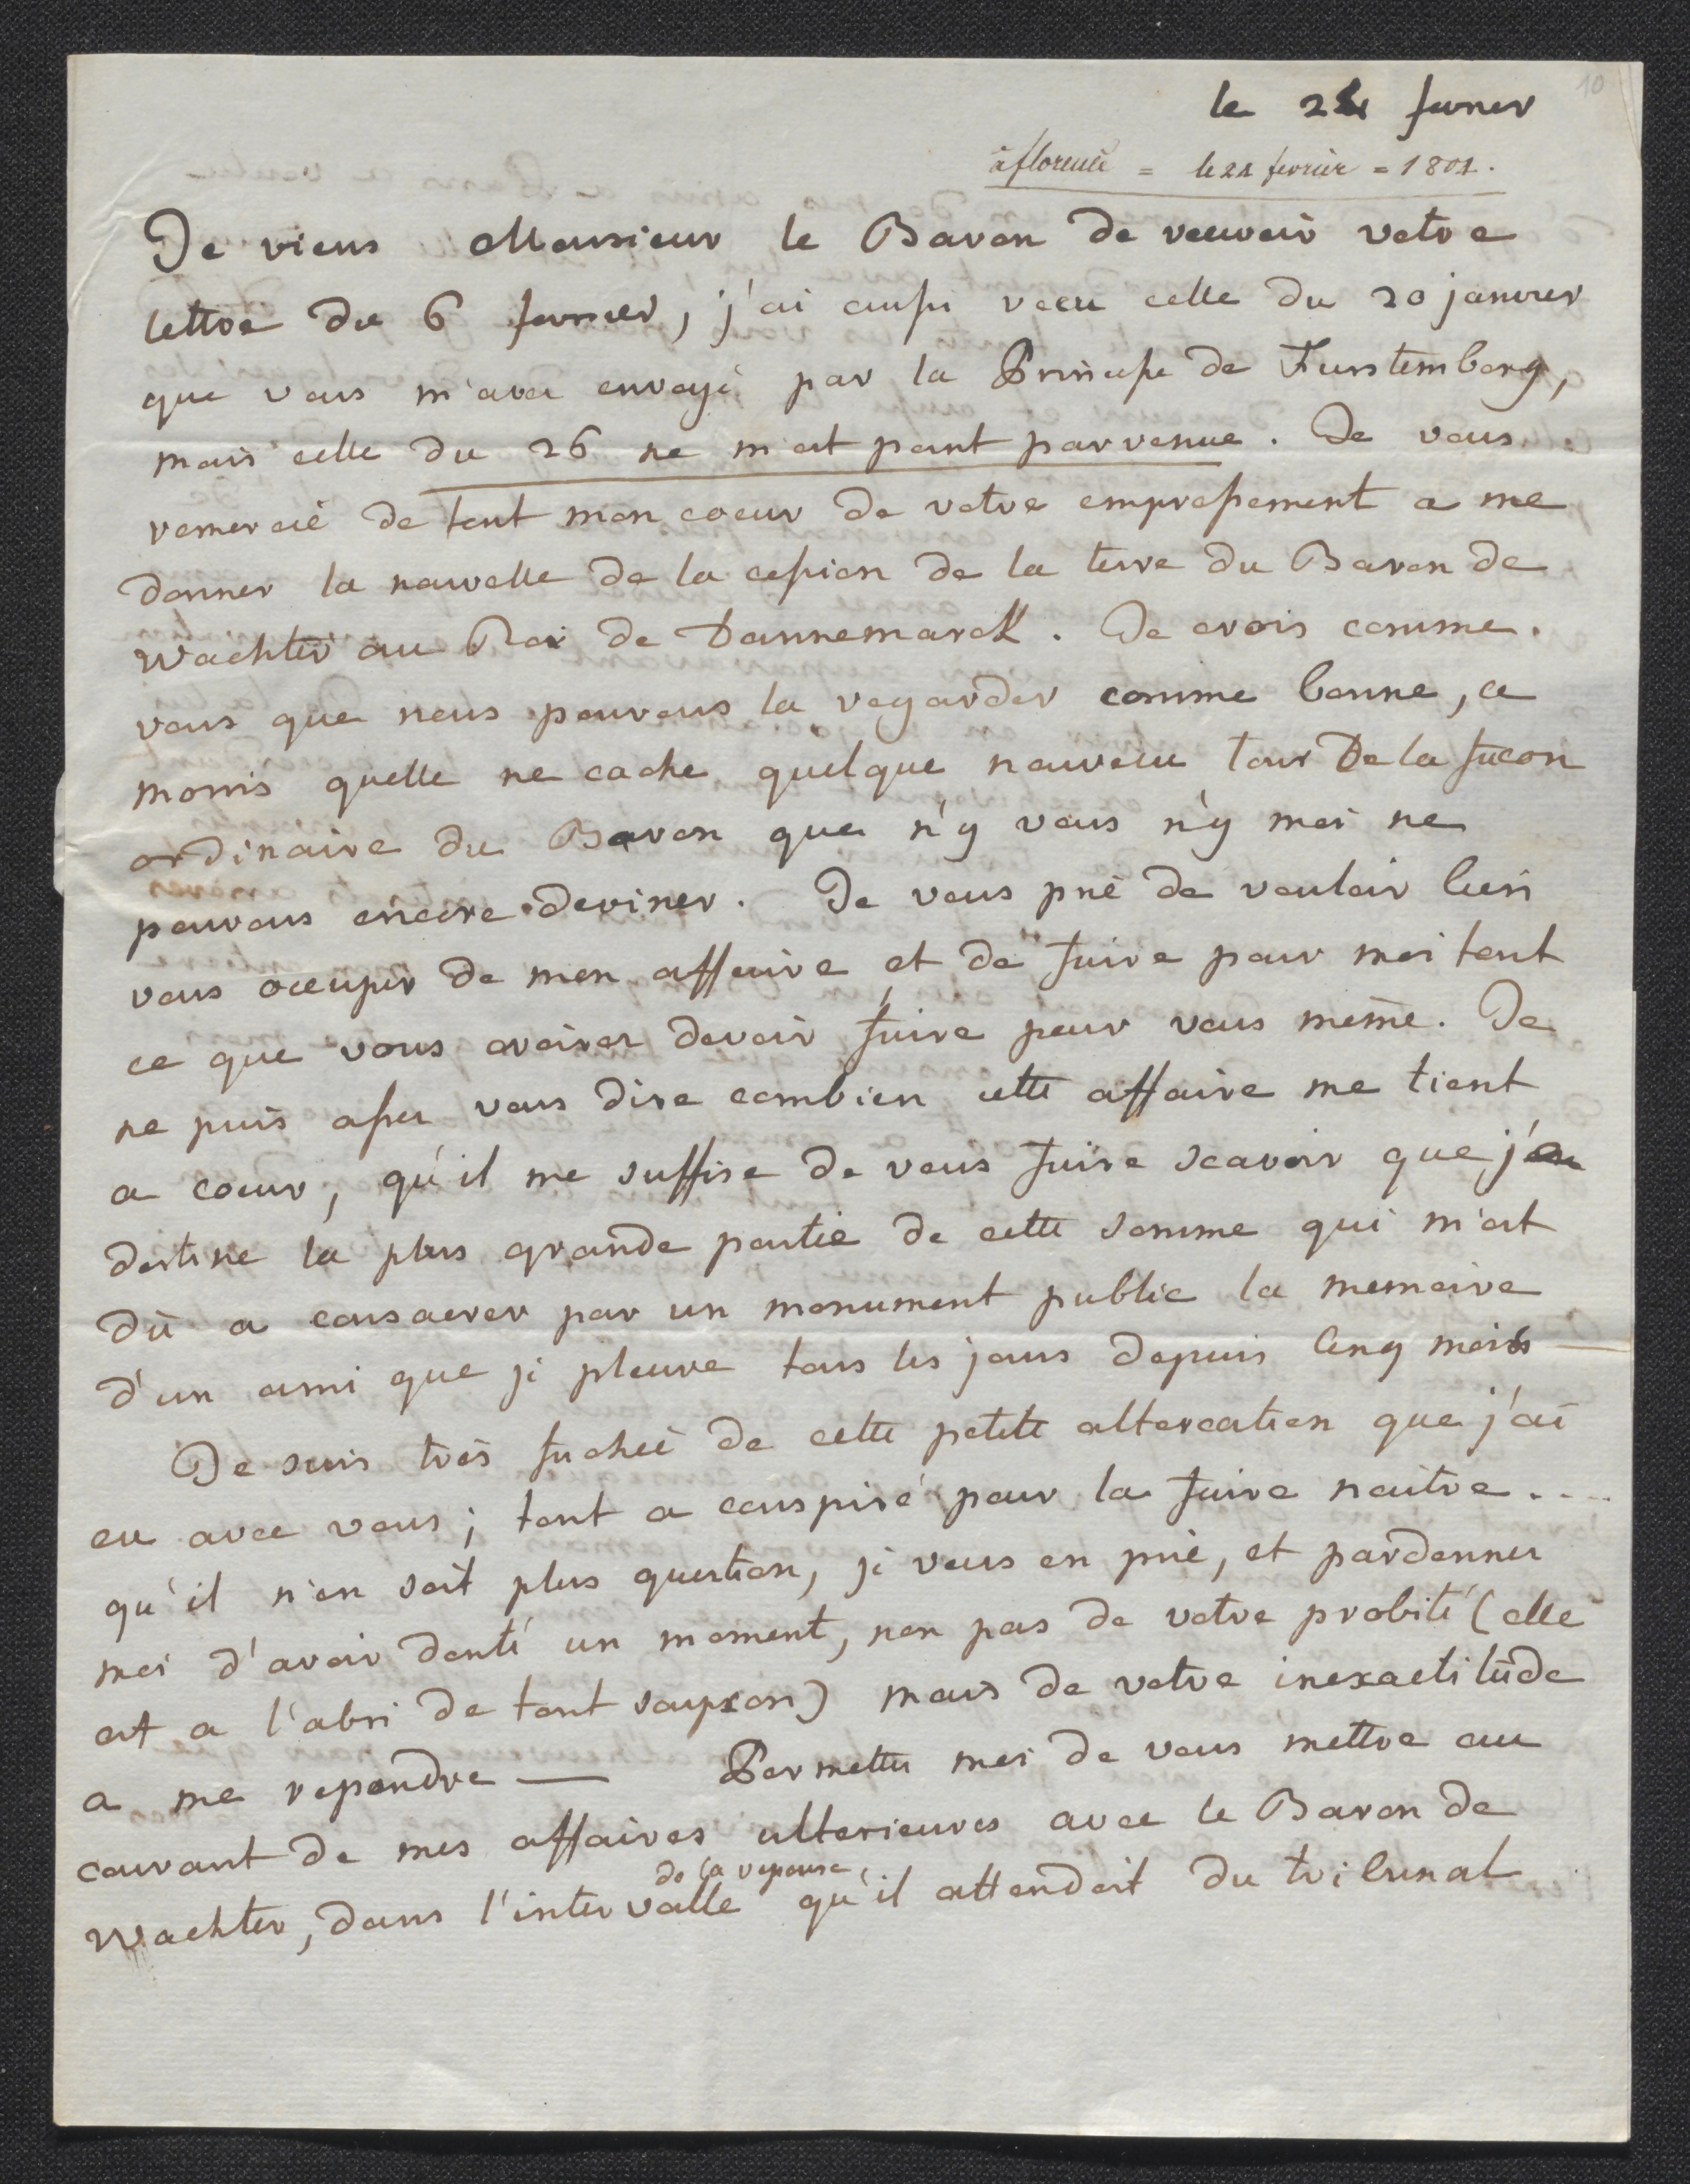 10
le 24 fevrier
à florence = le 24 fevrier = 1801.
Je viens Monsieur le Baron de recevoir votre
lettre du 6 fevrier, j'ai aussi recu celle du 20 janvier
que vous m'avez envoyé par la Princesse de Furstemberg,
mais celle du 26 ne m'est point parvenue. Je vous
remercie de tout mon coeur de votre empressement a me
donner la nouvelle de la cession de la terre du Baron de
Wachter au Roi de Dannemarck. Je crois comme
vous que nous pouvons la regarder comme bonne, a
moins quelle ne cache quelque nouveau tour De la facon
ordinaire du Baron que n'y vous n'y moi ne
pouvons encore deviner. Je vous prie de vouloir bien
vous occuper de mon affaire et de faire pour moi tout
ce que vous croirez devoir faire pour vous même. Je
ne puis assez vous dire combien cette affaire me tient
a coeur, qu'il me suffise de vous faire scavoir que je
destine la plus grande partie de cette somme qui m'est
dû a consacrer par un monument public la memoire
d'un ami que je pleure tous les jours depuis Cinq mois
Je suis très fachée de cette petite altercation que j'ai
eu avec vous; tout a conspiré pour la faire naitre....
qu'il n'en soit plus question, je vous en prie, et pardonnez
moi d'avoir douté un moment, non pas de votre probité (elle
est a l'abri de tout soupcon) mais de votre inexactitude
a me repondre — Permettez moi de vous mettre au
courant de mes affaires ulterieures avec le Baron de
de la reponse
Wachter, dans l'intervalle qu'il attendoit du tribunal